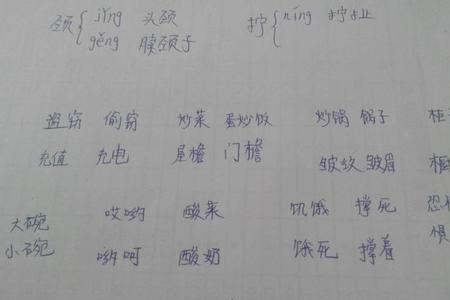 颈{jǐng 头颈 拧{níng 拧
gěng 脖颈子
盗窃 偷窃 炒菜 蛋炒饭 炒锅 锅子
充值 充电 屋檐 门檐 皱纹 皱眉
大碗 哎哟 酸菜 饥饿 撑死
小碗 哟呵 酸奶 饿死 撑着